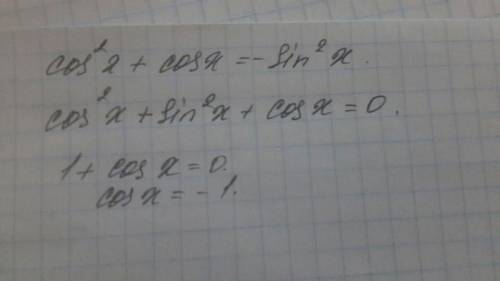 cos²x + cosx = -sin²x.
cos²x + sin²x + cosx = 0.
1 + cosx = 0.
cosx = -1.